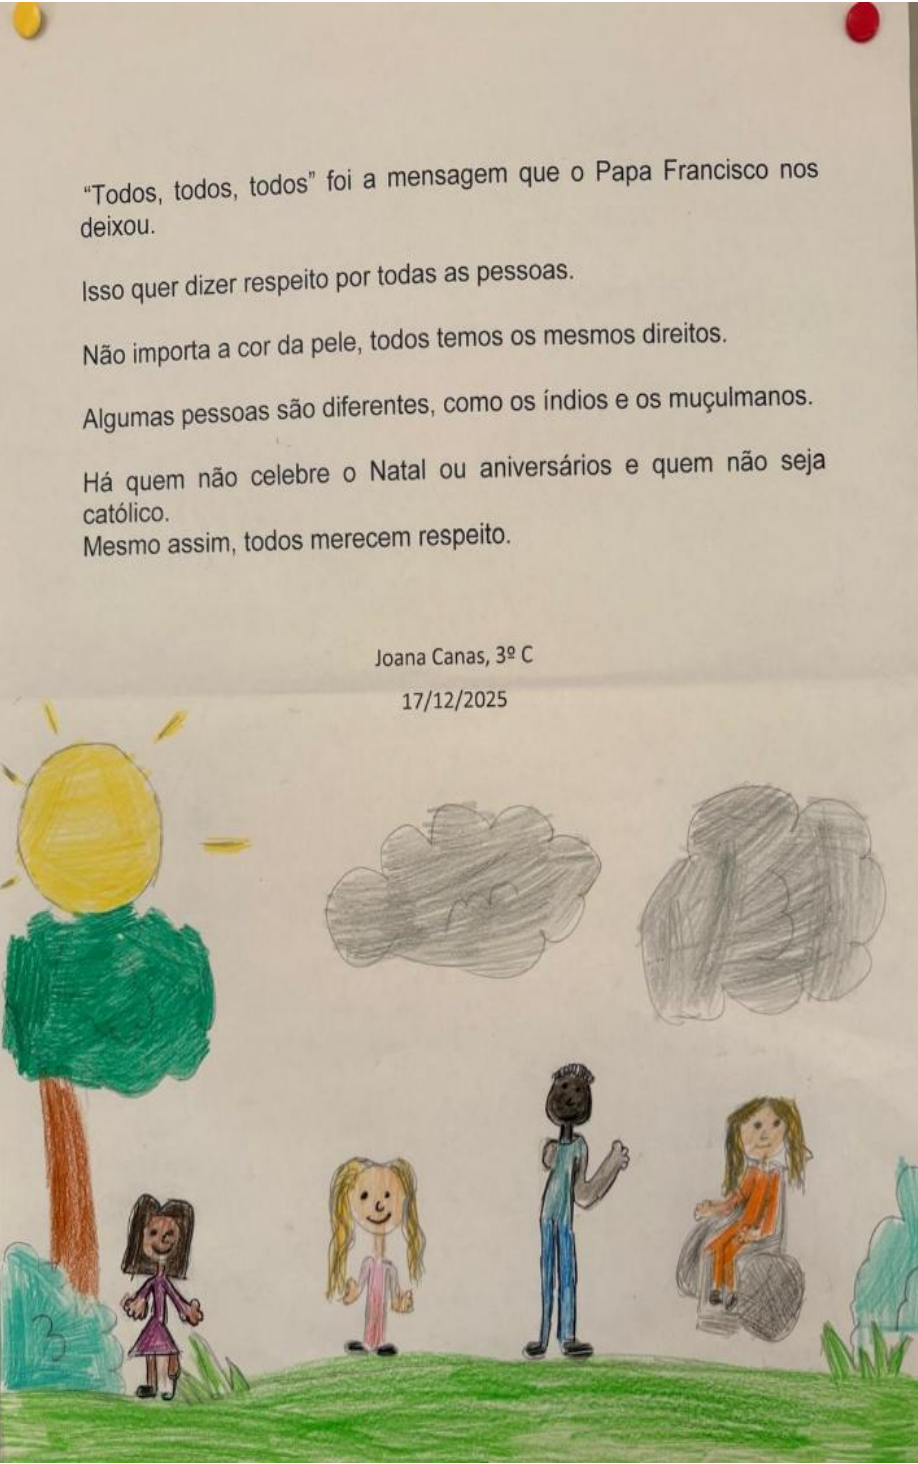 “Todos, todos, todos” foi a mensagem que o Papa Francisco nos
deixou.
Isso quer dizer respeito por todas as pessoas.
Não importa a cor da pele, todos temos os mesmos direitos.
Algumas pessoas são diferentes, como os índios e os muçulmanos.
Há quem não celebre o Natal ou aniversários e quem não seja
católico.
Mesmo assim, todos merecem respeito.
Joana Canas, 3º C
17/12/2025